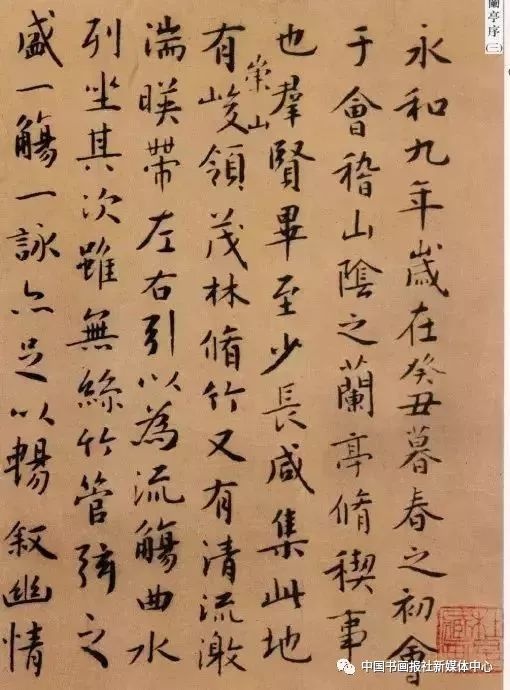 蘭亭序(三)
永和九年歲在癸丑暮春之初會
于會稽山陰之蘭亭脩稧事
也羣賢畢至少長咸集此地
崇山
有峻領茂林脩竹又有清流激
湍暎帶左右引以為流觴曲水
列坐其次雖無絲竹管弦之
盛一觴一詠亦足以暢叙幽情
中国书画报社新媒体中心